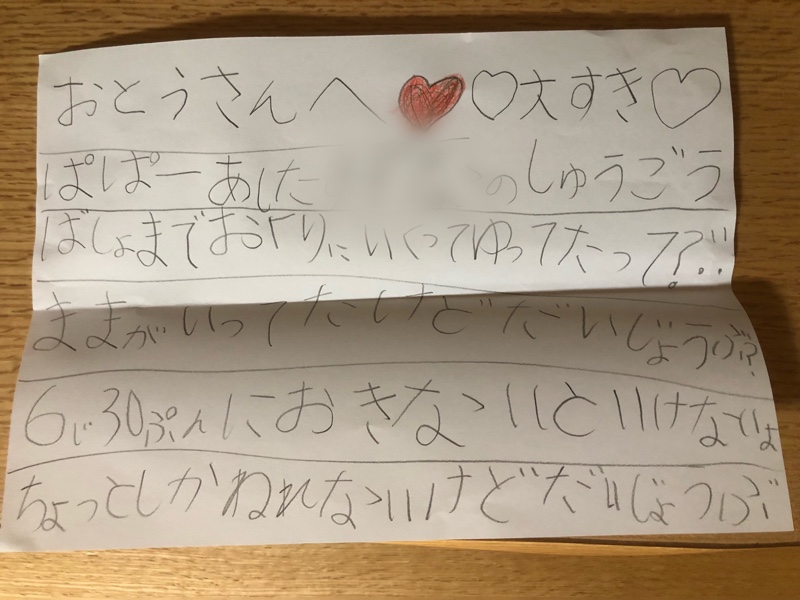 おとうさんへ ♥♡大すき♡
ぱぱーあした のしゅうごう
ばしょまでおくりにいくってゆってたって?
ままがいってたけどだいじょうぶ?
6じ30ぷんにおきないといけないよ
ちょっとしかねれないけどだいじょうぶ